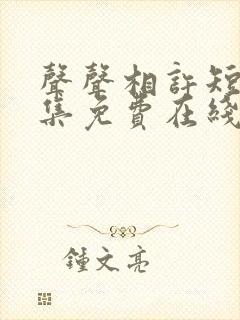 聲聲相許短
集免費在綫
鍾文亮